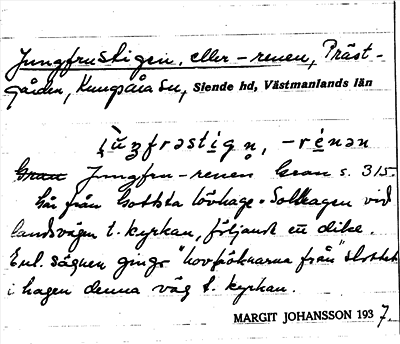 Jungfrustigen, eller -renen, Präst-
gården, Kungsåra sn, Siende hd, Västmanlands län
-rénən
Jungfru-renen Gran s. 315.
Går från Gottsta lövhage - Solhagen vid
landsvägen t. kyrkan, följande ett dike.
Enl. sägnen gingo "hovfröknarna från" slottet
i hagen denna väg t. kyrkan.
MARGIT JOHANSSON 1937.